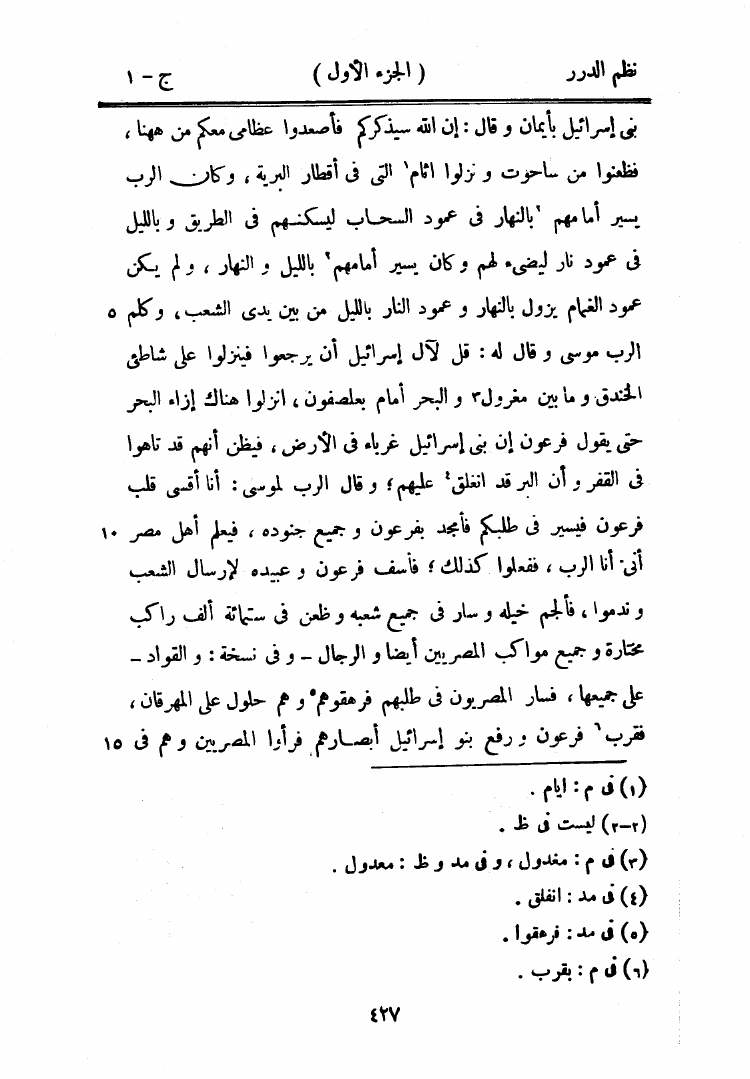 نظم الدرر (الجزء الأول) ج - ١
بنى إسرائيل بأيمان و قال: إن الله سيذكركم فأصعدوا عظامى معكم من ههنا،
فظعنوا من ساحوت و نزلوا اثام١ التى فى أقطار البرية، وكان الرب
يسير أمامهم ٢بالنهار فى عمود السحاب ليسكنهم فى الطريق و بالليل
فى عمود نار ليضىء لهم وكان يسير أمامهم٢ بالليل و النهار، و لم يكن
عمود الغمام يزول بالنهار و عمود النار بالليل من بين يدى الشعب، وكلم ٥
الرب موسى و قال له: قل لآل إسرائيل أن يرجعوا فينزلوا على شاطئى
الخندق و ما بين مغرول٣ و البحر أمام بعلصفون، انزلوا هناك إزاء البحر
حتى يقول فرعون إن بنى إسرائيل غرباء فى الأرض، فيظن أنهم قد تاهوا
فى القفر و أن البر قد انغلق٤ عليهم؛ و قال الرب لموسى: أنا أقسى قلب
فرعون فيسير فى طلبكم فأمجد بفرعون و جميع جنوده، فيعلم أهل مصر ١٠
أنى أنا الرب، ففعلوا كذلك؛ فأسف فرعون و عبيده لإرسال الشعب
و ندموا، فألجم خيله و سار فى جميع شعبه و ظعن فى ستمائة ألف راكب
مختارة و جميع مواكب المصريين أيضا و الرجال - و فى نسخة: و القواد -
على جميعها، فسار المصريون فى طلبهم فرهقوهم٥ و هم حلول على المهرقان،
فقرب٦ فرعون و رفع بنو إسرائيل أبصارهم فرأوا المصريين و هم فى ١٥
(١) فى م: ايام.
(٢-٢) ليست فى ظ.
(٣) فى م: مغدول، و فى مد و ظ: معدول.
(٤) فى مد: انفلق.
(٥) فى مد: فرهقوا.
(٦) فى م: بقرب.
٤٢٧